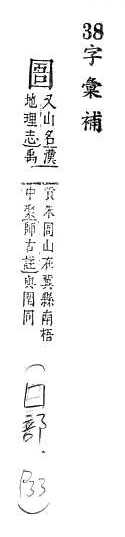 38字彙補
又山名漢
地理志禹
貢朱山在冀縣南梧
中聚師古註與圉同
(囗部.P33)